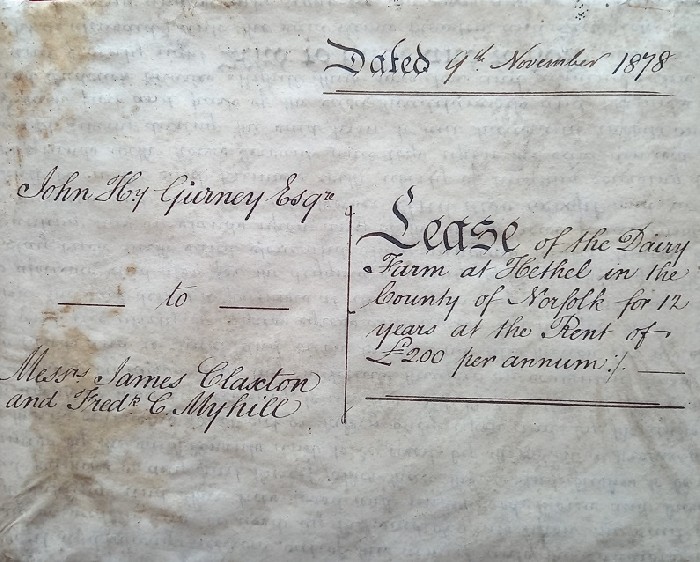 Dated 9th November 1878
John Hy Gurney Esqre
to
Messrs James Claxton
and Fredk C. Myhill
Lease of the Dairy
Farm at Hethel in the
County of Norfolk for 12
years at the Rent of
£200 per annum :/.